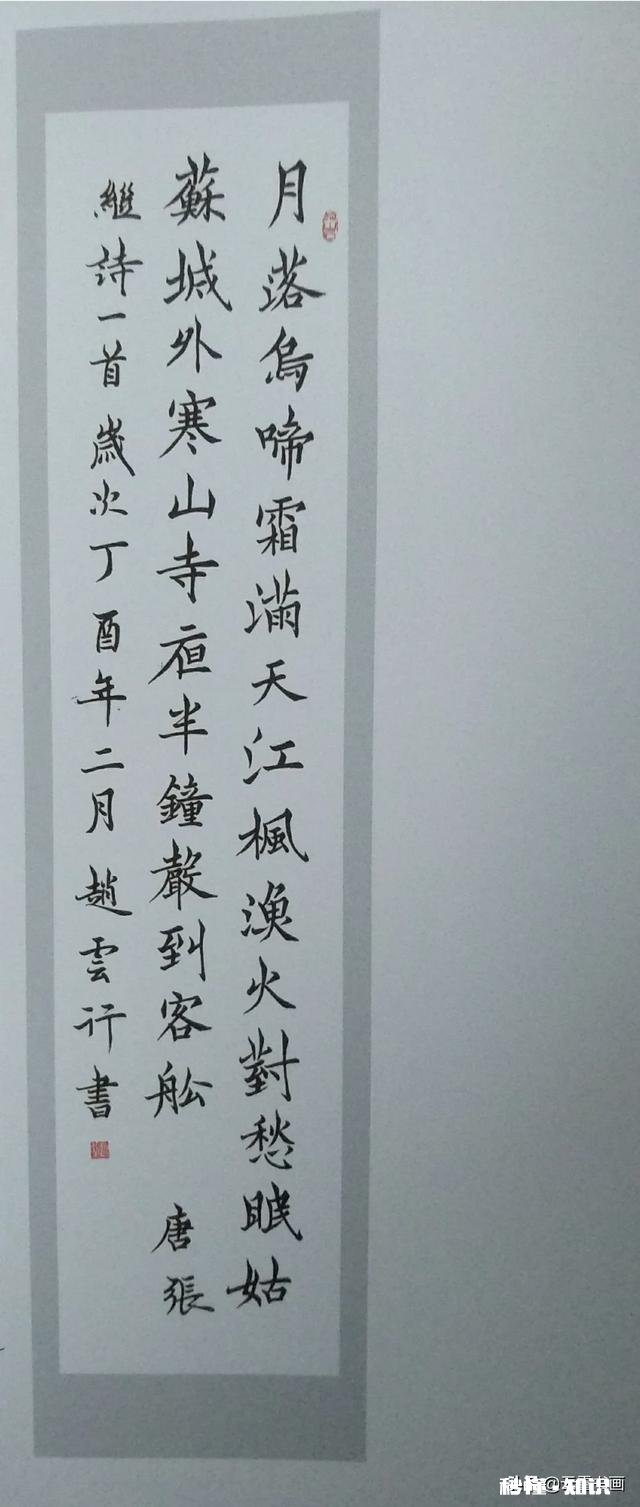 月落烏啼霜滿天江楓漁火對愁眠姑
蘇城外寒山寺夜半鐘聲到客船 唐張
繼詩一首 歲次丁酉年二月趙雲行書
秒懂·知识